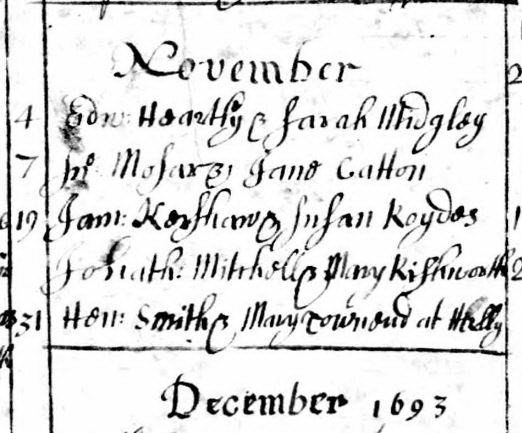 November
4 Edw: Hearthy & Sarah Midgley
7 Jno Mosar & Jane Catton
19 Jam: Kershaw & Susan Roydes
Jonath: Mitchell & Mary Rishworth
31 Hen: Smith & Mary Townend at
December 1693